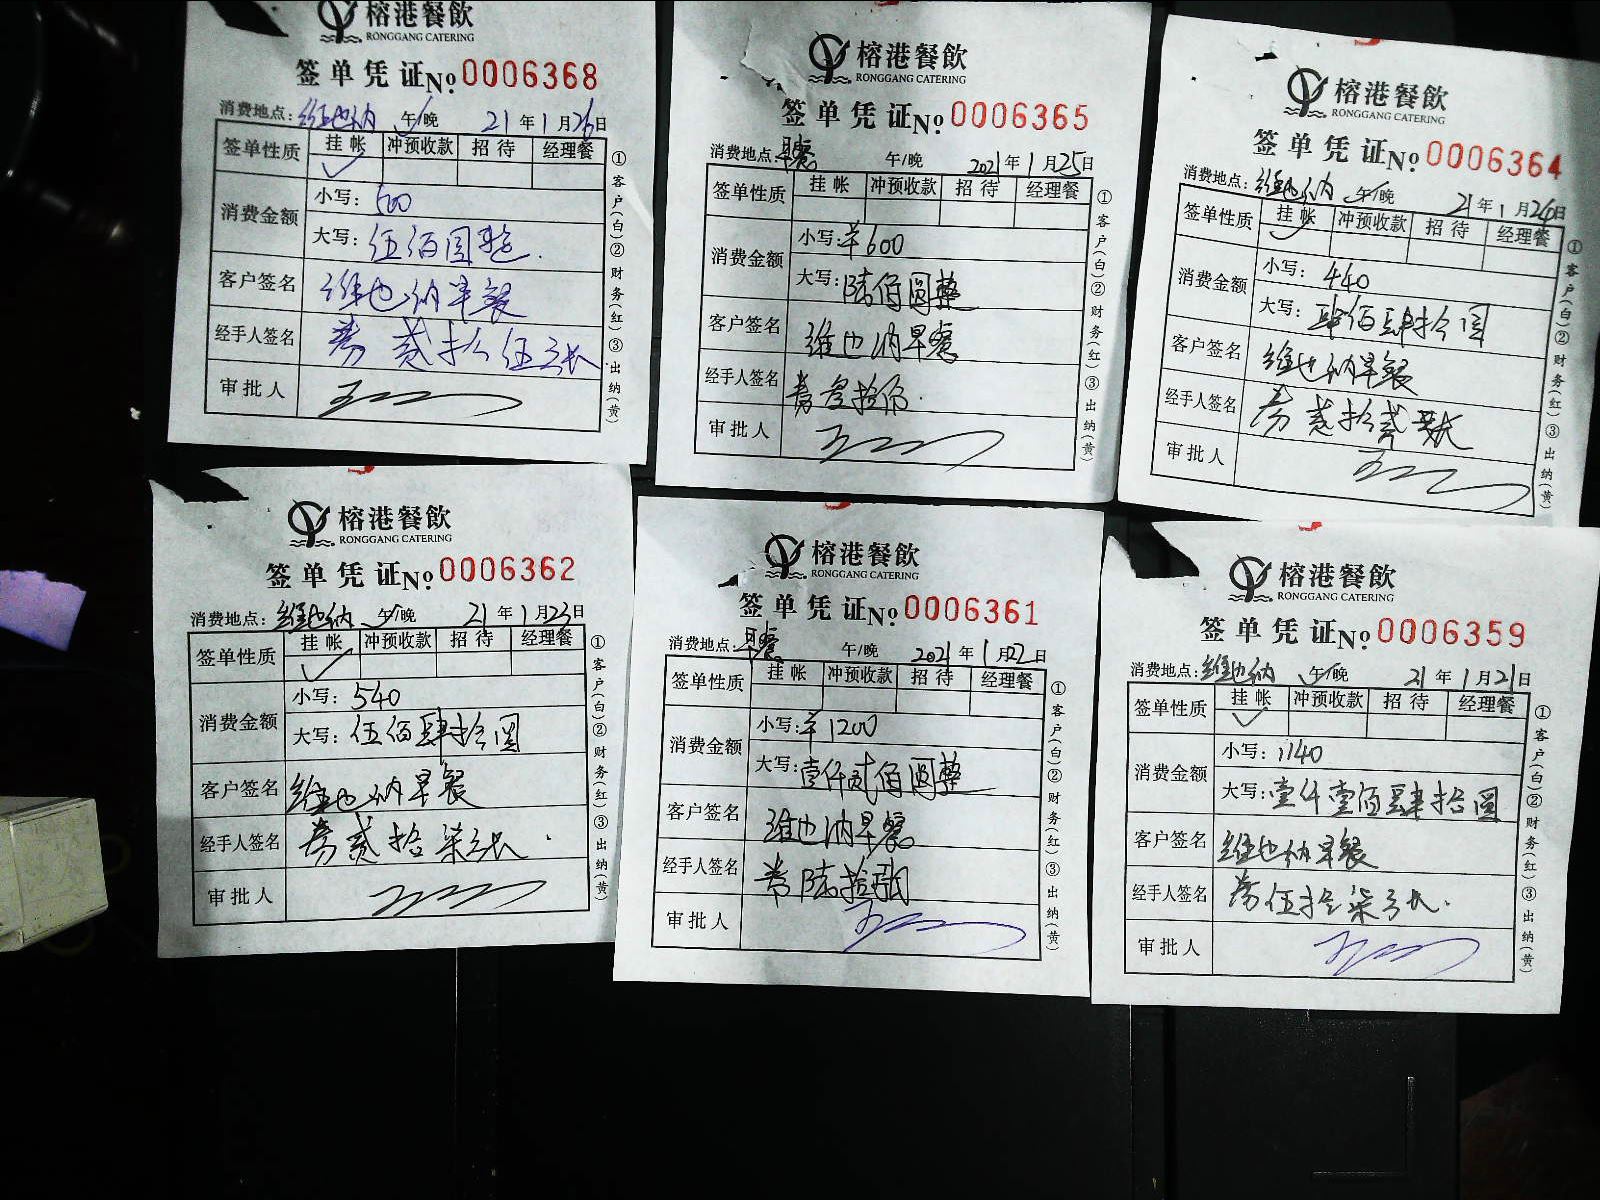 榕港餐飲
RONGGANG CATERING
签单凭证No. 0006368
消费地点: 维也纳 午/晚 21年1月26日
签单性质 挂帐 冲预收款 招待 经理餐
消费金额 小写: 500
大写: 伍佰圆整.
客户签名 维也纳早餐
经手人签名 券 贰拾伍张
审批人
①客户(白)②财务(红)③出纳(黄)
榕港餐飲
RONGGANG CATERING
签单凭证No. 0006365
消费地点: 早餐 午/晚 2021年1月25日
签单性质 挂帐 冲预收款 招待 经理餐
消费金额 小写: ¥600
大写: 陆佰圆整
客户签名 维也纳早餐
经手人签名 券叁拾张.
审批人
①客户(白)②财务(红)③出纳(黄)
榕港餐飲
RONGGANG CATERING
签单凭证No. 0006364
消费地点: 维也纳 午/晚 21年1月24日
签单性质 挂帐 冲预收款 招待 经理餐
消费金额 小写: 440
大写: 肆佰肆拾圆
客户签名 维也纳早餐
经手人签名 券贰拾贰张
审批人
①客户(白)②财务(红)③出纳(黄)
榕港餐飲
RONGGANG CATERING
签单凭证No. 0006362
消费地点: 维也纳 午/晚 21年1月23日
签单性质 挂帐 冲预收款 招待 经理餐
消费金额 小写: 540
大写: 伍佰肆拾圆
客户签名 维也纳早餐
经手人签名 券贰拾柒张.
审批人
①客户(白)②财务(红)③出纳(黄)
榕港餐飲
RONGGANG CATERING
签单凭证No. 0006361
消费地点: 早餐 午/晚 2021年1月22日
签单性质 挂帐 冲预收款 招待 经理餐
消费金额 小写: ¥1200
大写: 壹仟贰佰圆整
客户签名 维也纳早餐
经手人签名 券陆拾张
审批人
①客户(白)②财务(红)③出纳(黄)
榕港餐飲
RONGGANG CATERING
签单凭证No. 0006359
消费地点: 维也纳 午/晚 21年1月21日
签单性质 挂帐 冲预收款 招待 经理餐
消费金额 小写: 1140
大写: 壹仟壹佰肆拾圆
客户签名 维也纳早餐
经手人签名 券伍拾柒张.
审批人
①客户(白)②财务(红)③出纳(黄)